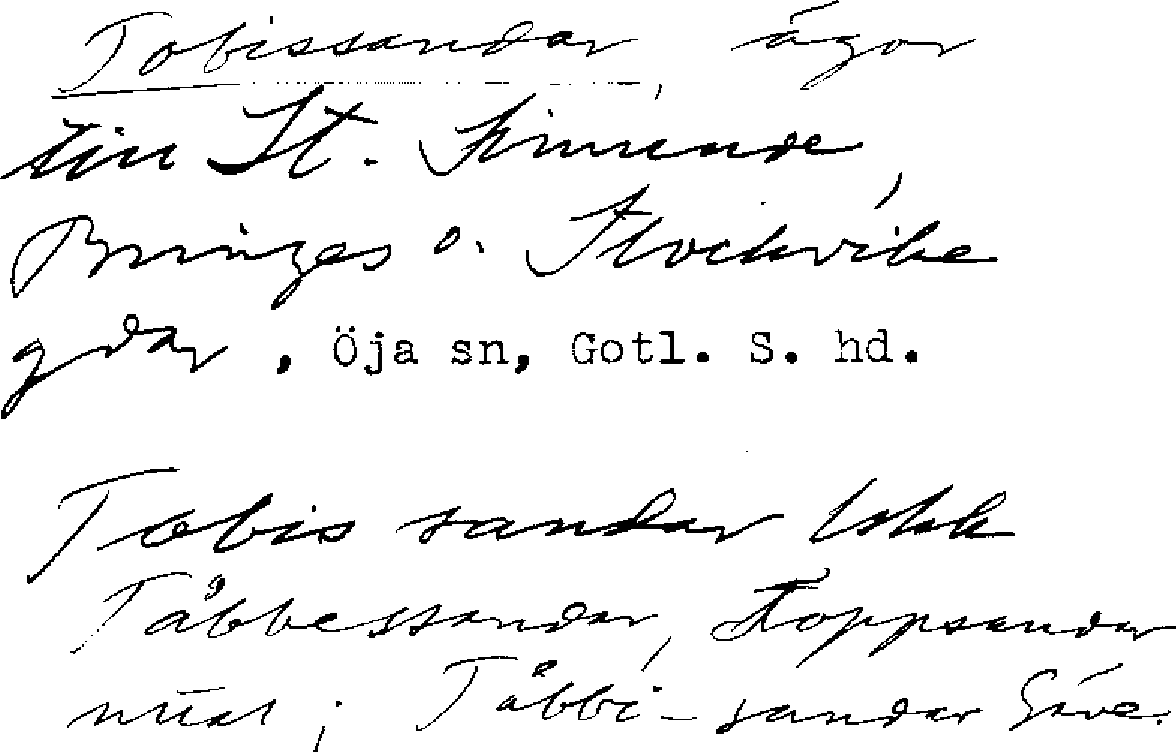 Tobissandar, ägor
till St. Simunde,
Bringes o. Stockvike
gdar, Öja sn, Gotl. S. hd.
Tobis sandar
Tåbbessandar, Toppsandar
; Tåbbi-sandar Säve.